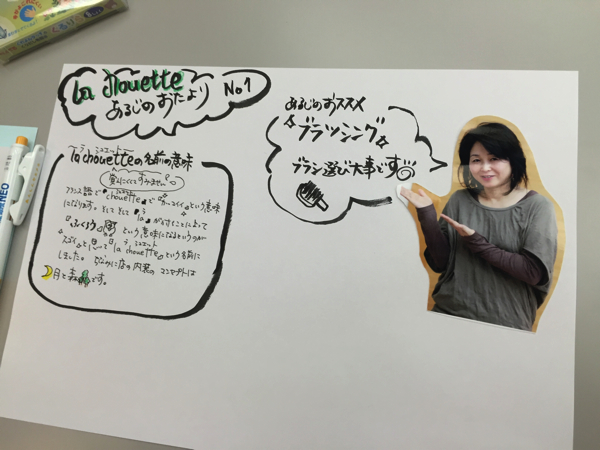 la chouette
あるじのおたより No1
ラ シュエット
la chouetteの名前の意味
覚えにくくてすみません
フランス語で「chouette」で「カーコイイ」という意味
になります。そしてそして「
ふくろう
という意味になるというのが
ステイと思い「la chouette」という名前に
しました。ちなみに店の内装のコンセプトは
月と森です。
あるじのおススメ
ブラッシング
ブラシ選び大事です
NEO